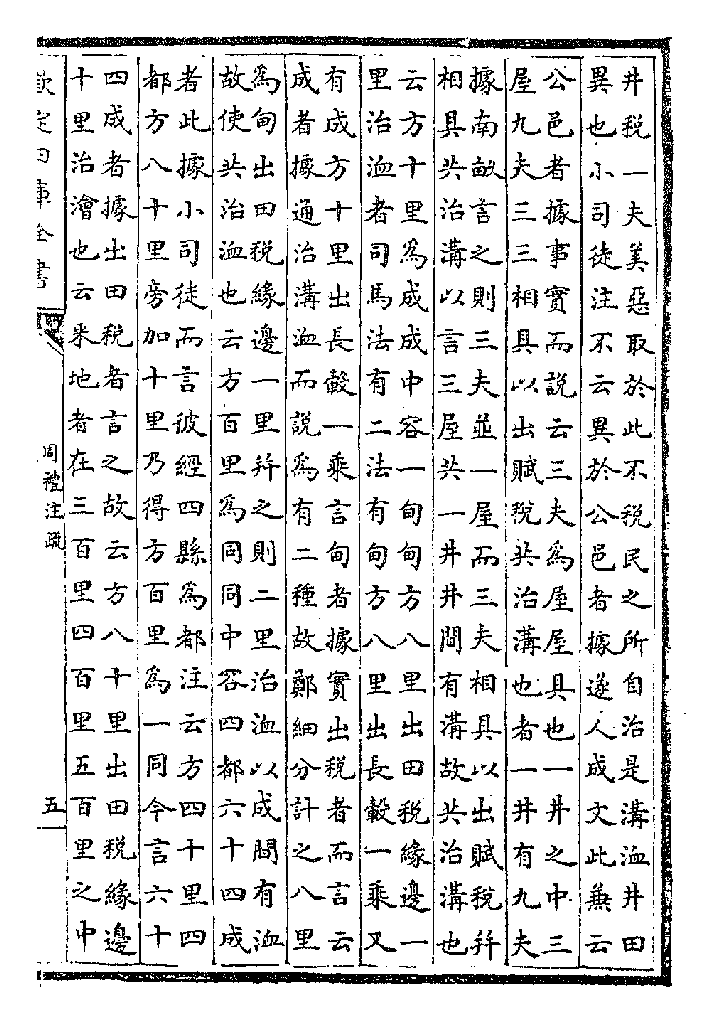 井稅一夫美惡取於此不稅民之所自治是溝洫井田
異也小司徒注不云異於公邑者據遂人成文此蒹云
公邑者據事實而說云三夫為屋屋具也一井之中三
屋九夫三三相具以出賦稅共治溝也者一井有九夫
據南畝言之則三夫並一屋而三夫相具以出賦稅幷
相具共治溝以言三屋共一井井間有溝故共治溝也
云方十里為成成中容一甸甸方八里出田稅緣邊一
里治洫者司馬法有二法有甸方八里出長轂一乘又
有成方十里出長轂一乘言甸者據實出稅者而言云
成者據通治溝洫而說為有二種故鄭細分計之八里
為甸出田稅緣邊一里幷之則二里治洫以成間有洫
故使共治洫也云方百里為同同中容四都六十四成
者此據小司徒而言彼經四縣為都注云方四十里四
都方八十里旁加十里乃得方百里為一同今言六十
四成者據出田稅者言之故云方八十里出田稅緣邊
十里治澮也云采地者在三百里四百里五百里之中
欽定四庫全書
周禮注疏
五